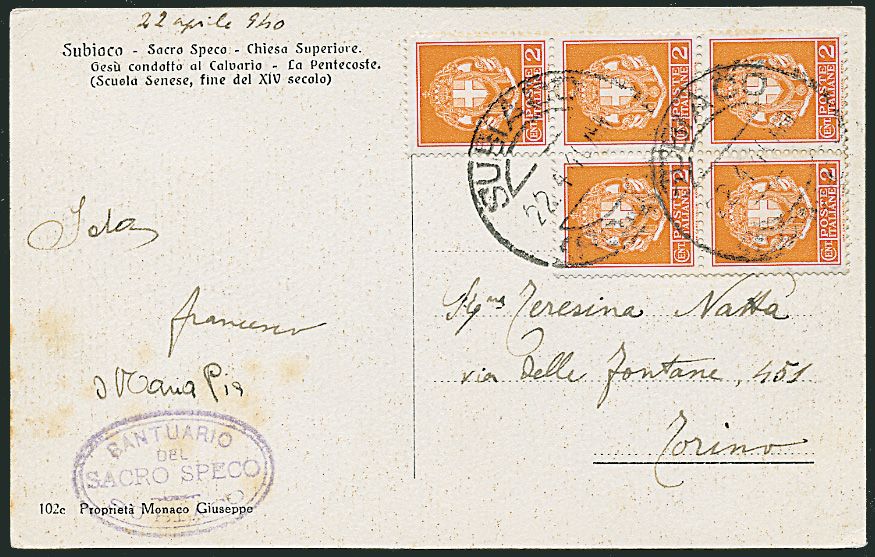 22 aprile 940
Subiaco - Sacro Speco - Chiesa Superiore.
Gesù condotto al Calvario - La Pentecoste.
(Scuola Senese, fine del XIV secolo)
CENT POSTE ITALIANE 2
CENT POSTE ITALIANE 2
CENT POSTE ITALIANE 2
CENT POSTE ITALIANE 2
CENT POSTE ITALIANE 2
SUBIACO
22.4
SUBIACO
22.4
Ida
francesco
Maria Pia
Teresina Natta
via delle fontane, 451
Torino
SANTUARIO
DEL
SACRO SPECO
SUBIACO
102c Proprietà Monaco Giuseppe